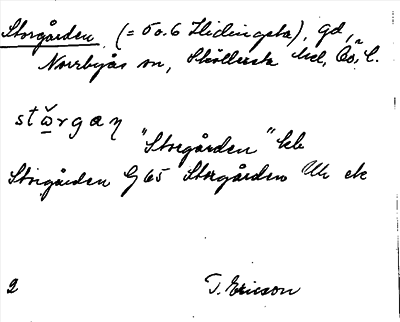 Storgården (= 50.6 Hidingsta), gd,
Norrbyås sn, Sköllersta hd, Ör. l.
stω̆rgaη
"Storgården" kb
Storgården G 65 Storgården Uk ek
2 T. Ericson